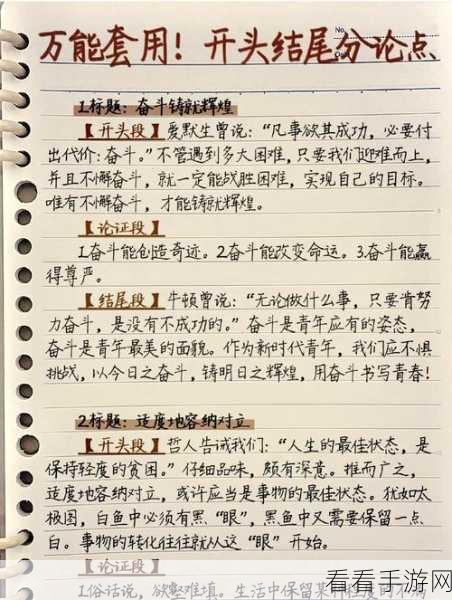 No.
万能套用！开头结尾分论点
1.标题：奋斗铸就辉煌
【开头段】爱默生曾说：“凡事欲其成功，必要付
出代价：奋斗。”不管遇到多大困难，只要我们迎难而上，
并且不懈奋斗，就一定能战胜困难，实现自己的目标。
唯有不懈奋斗，才能铸就辉煌。
【论证段】
1.奋斗能创造奇迹。2.奋斗能改变命运。3.奋斗能赢
得尊严。
【结尾段】牛顿曾说：“无论做什么事，只要肯努
力奋斗，是没有不成功的。”奋斗是青年应有的姿态，
奋斗是青年最美的面貌。作为新时代青年，我们应不惧
挑战，以今日之奋斗，铸明日之辉煌，用奋斗书写青春！
2.标题：适度地容纳对立
【开头段】哲人告诫我们：“人生的最佳状态，是
保持轻度的贫困。”仔细品味，颇有深意。推而广之，
适度地容纳对立，或许应当是事物的最佳状态。犹如太
极图，白鱼中必须有黑“眼”，黑鱼中又需要保留一点
白。事物的转化往往就从这“眼”开始。
【论证段】
1.俗话说，欲壑难填。生活中保留某种程度的不满
看看手游网